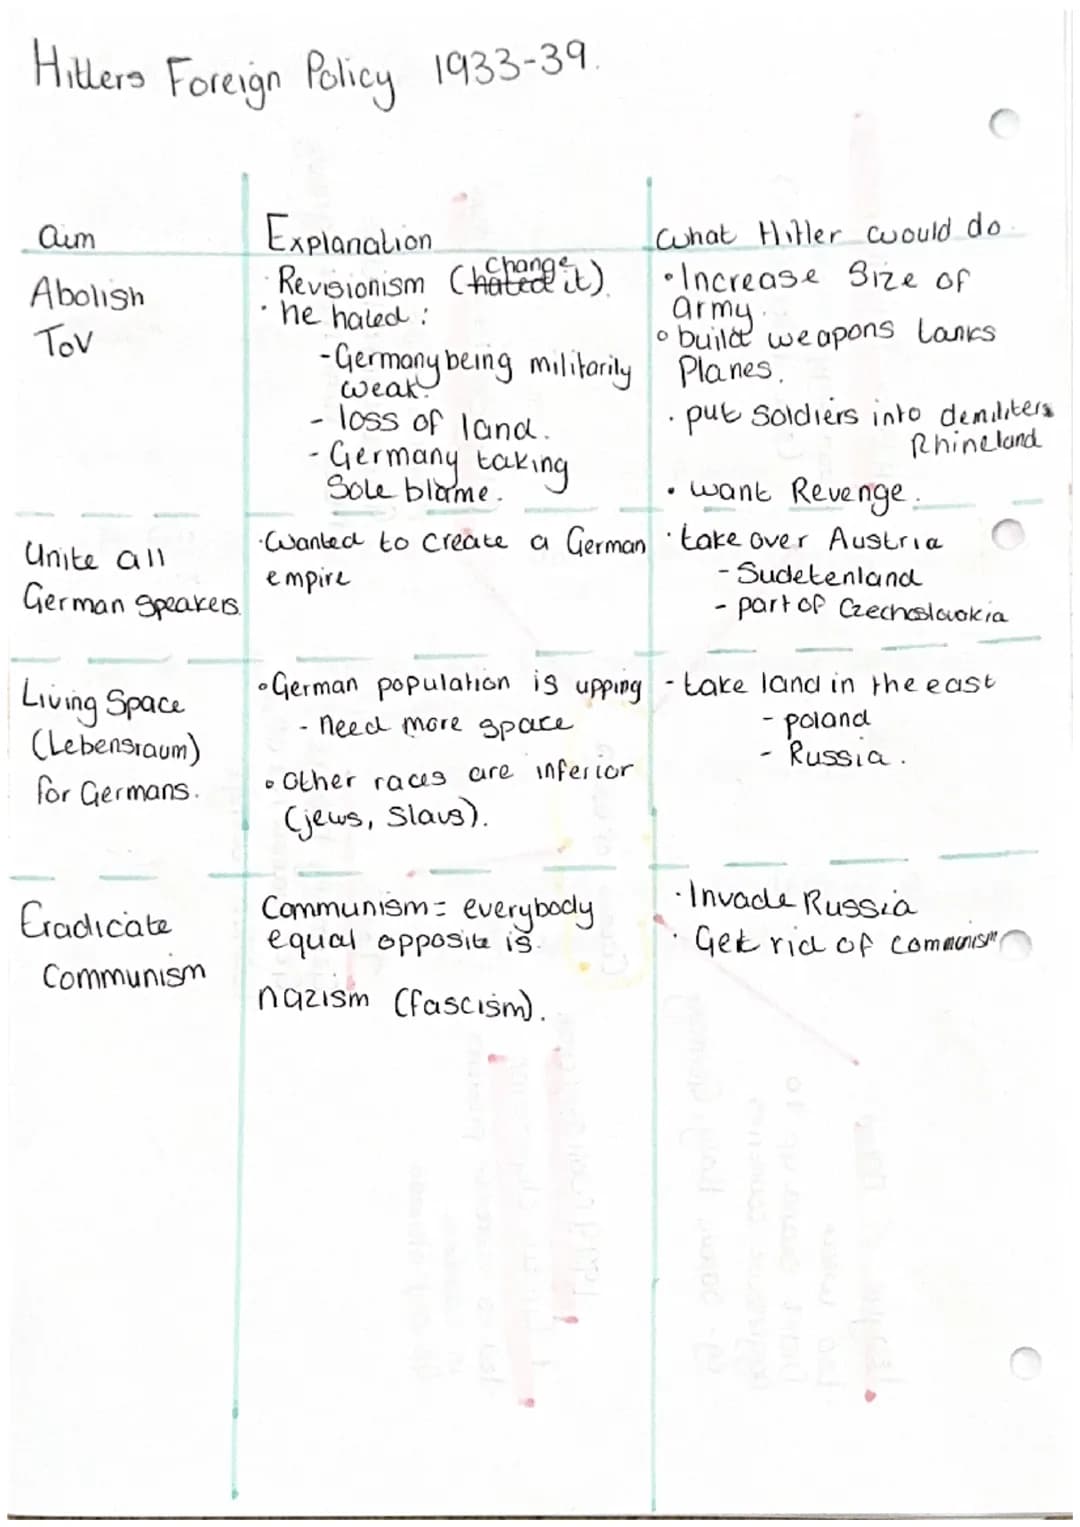 Hitlers Foreign Policy 1933-39.
aim
Explanation
what Hitler would do.
Abolish
TOV
· Revisionism (hated it).
change
· he hated :
- Germany being militarily
weak.
- loss of land.
- Germany taking
Sole blame.
• Increase Size of
army.
• build weapons tanks
Planes.
· put Soldiers into demiliters
Rhineland
• want Revenge.
Unite all
German Speakers.
· Wanted to create a German
empire
· take over Austria
- Sudetenland
- part of Czechoslovakia
Living Space
(Lebensraum)
for Germans.
• German population is upping
- need more space
• Other races are inferior
(jews, Slavs).
- take land in the east
- poland
- Russia.
Eradicate
Communism
Communism = everybody
equal opposite is
nazism (fascism).
· Invade Russia
· Get rid of communism